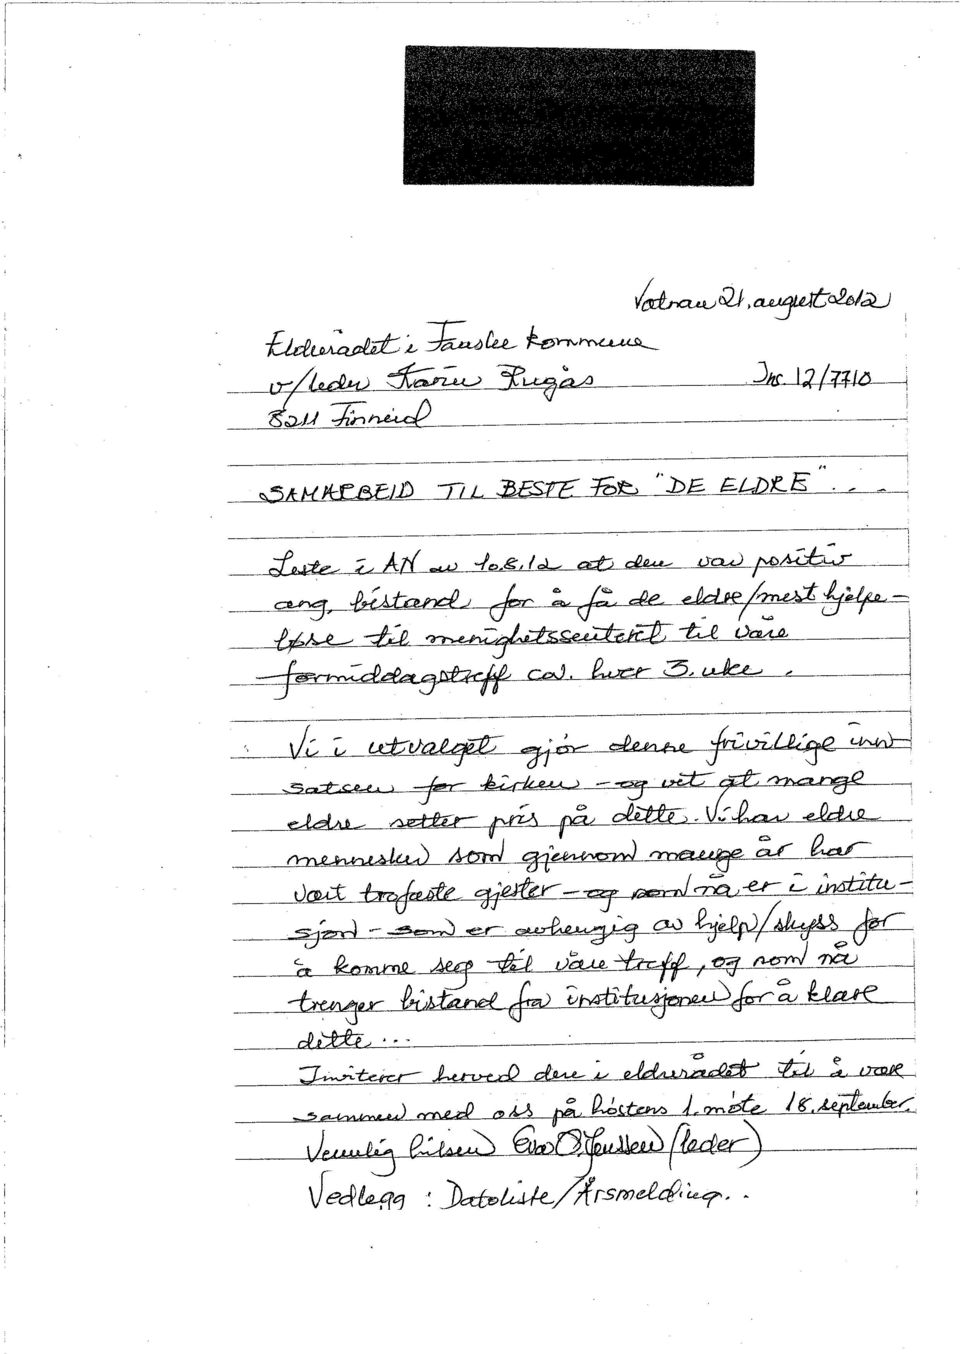 Valnau 21. august 2012
Eldrerådet i Fauske kommune
v/leder Karin Rugås Jnr. 12/7710
8211 Finneid
SAMARBEID TIL BESTE FOR "DE ELDRE" ...
Leste i AN av 10.8.12 at den var positiv
ang. bistand for å få de eldre/mest hjelpe-
løse til menighetssenteret til våre
formiddagstreff ca. hver 3. uke.
Vi i utvalget gjør denne frivillige inn
satsen for kirken - og vet at mange
eldre setter pris på dette. Vi har eldre
mennesker som gjennom mange år har
vært trofaste gjester - og som nå er i institu-
sjon - som er avhengig av hjelp/skyss for
å komme seg til våre treff, og som nå
trenger bistand fra institusjonen for å klare
dette...
Inviterer herved dere i eldrerådet til å være
sammen med oss på høstens 1. møte 18. september.
Vennlig hilsen Eva O. Jenssen (leder)
Vedlegg : Datoliste/Årsmelding..